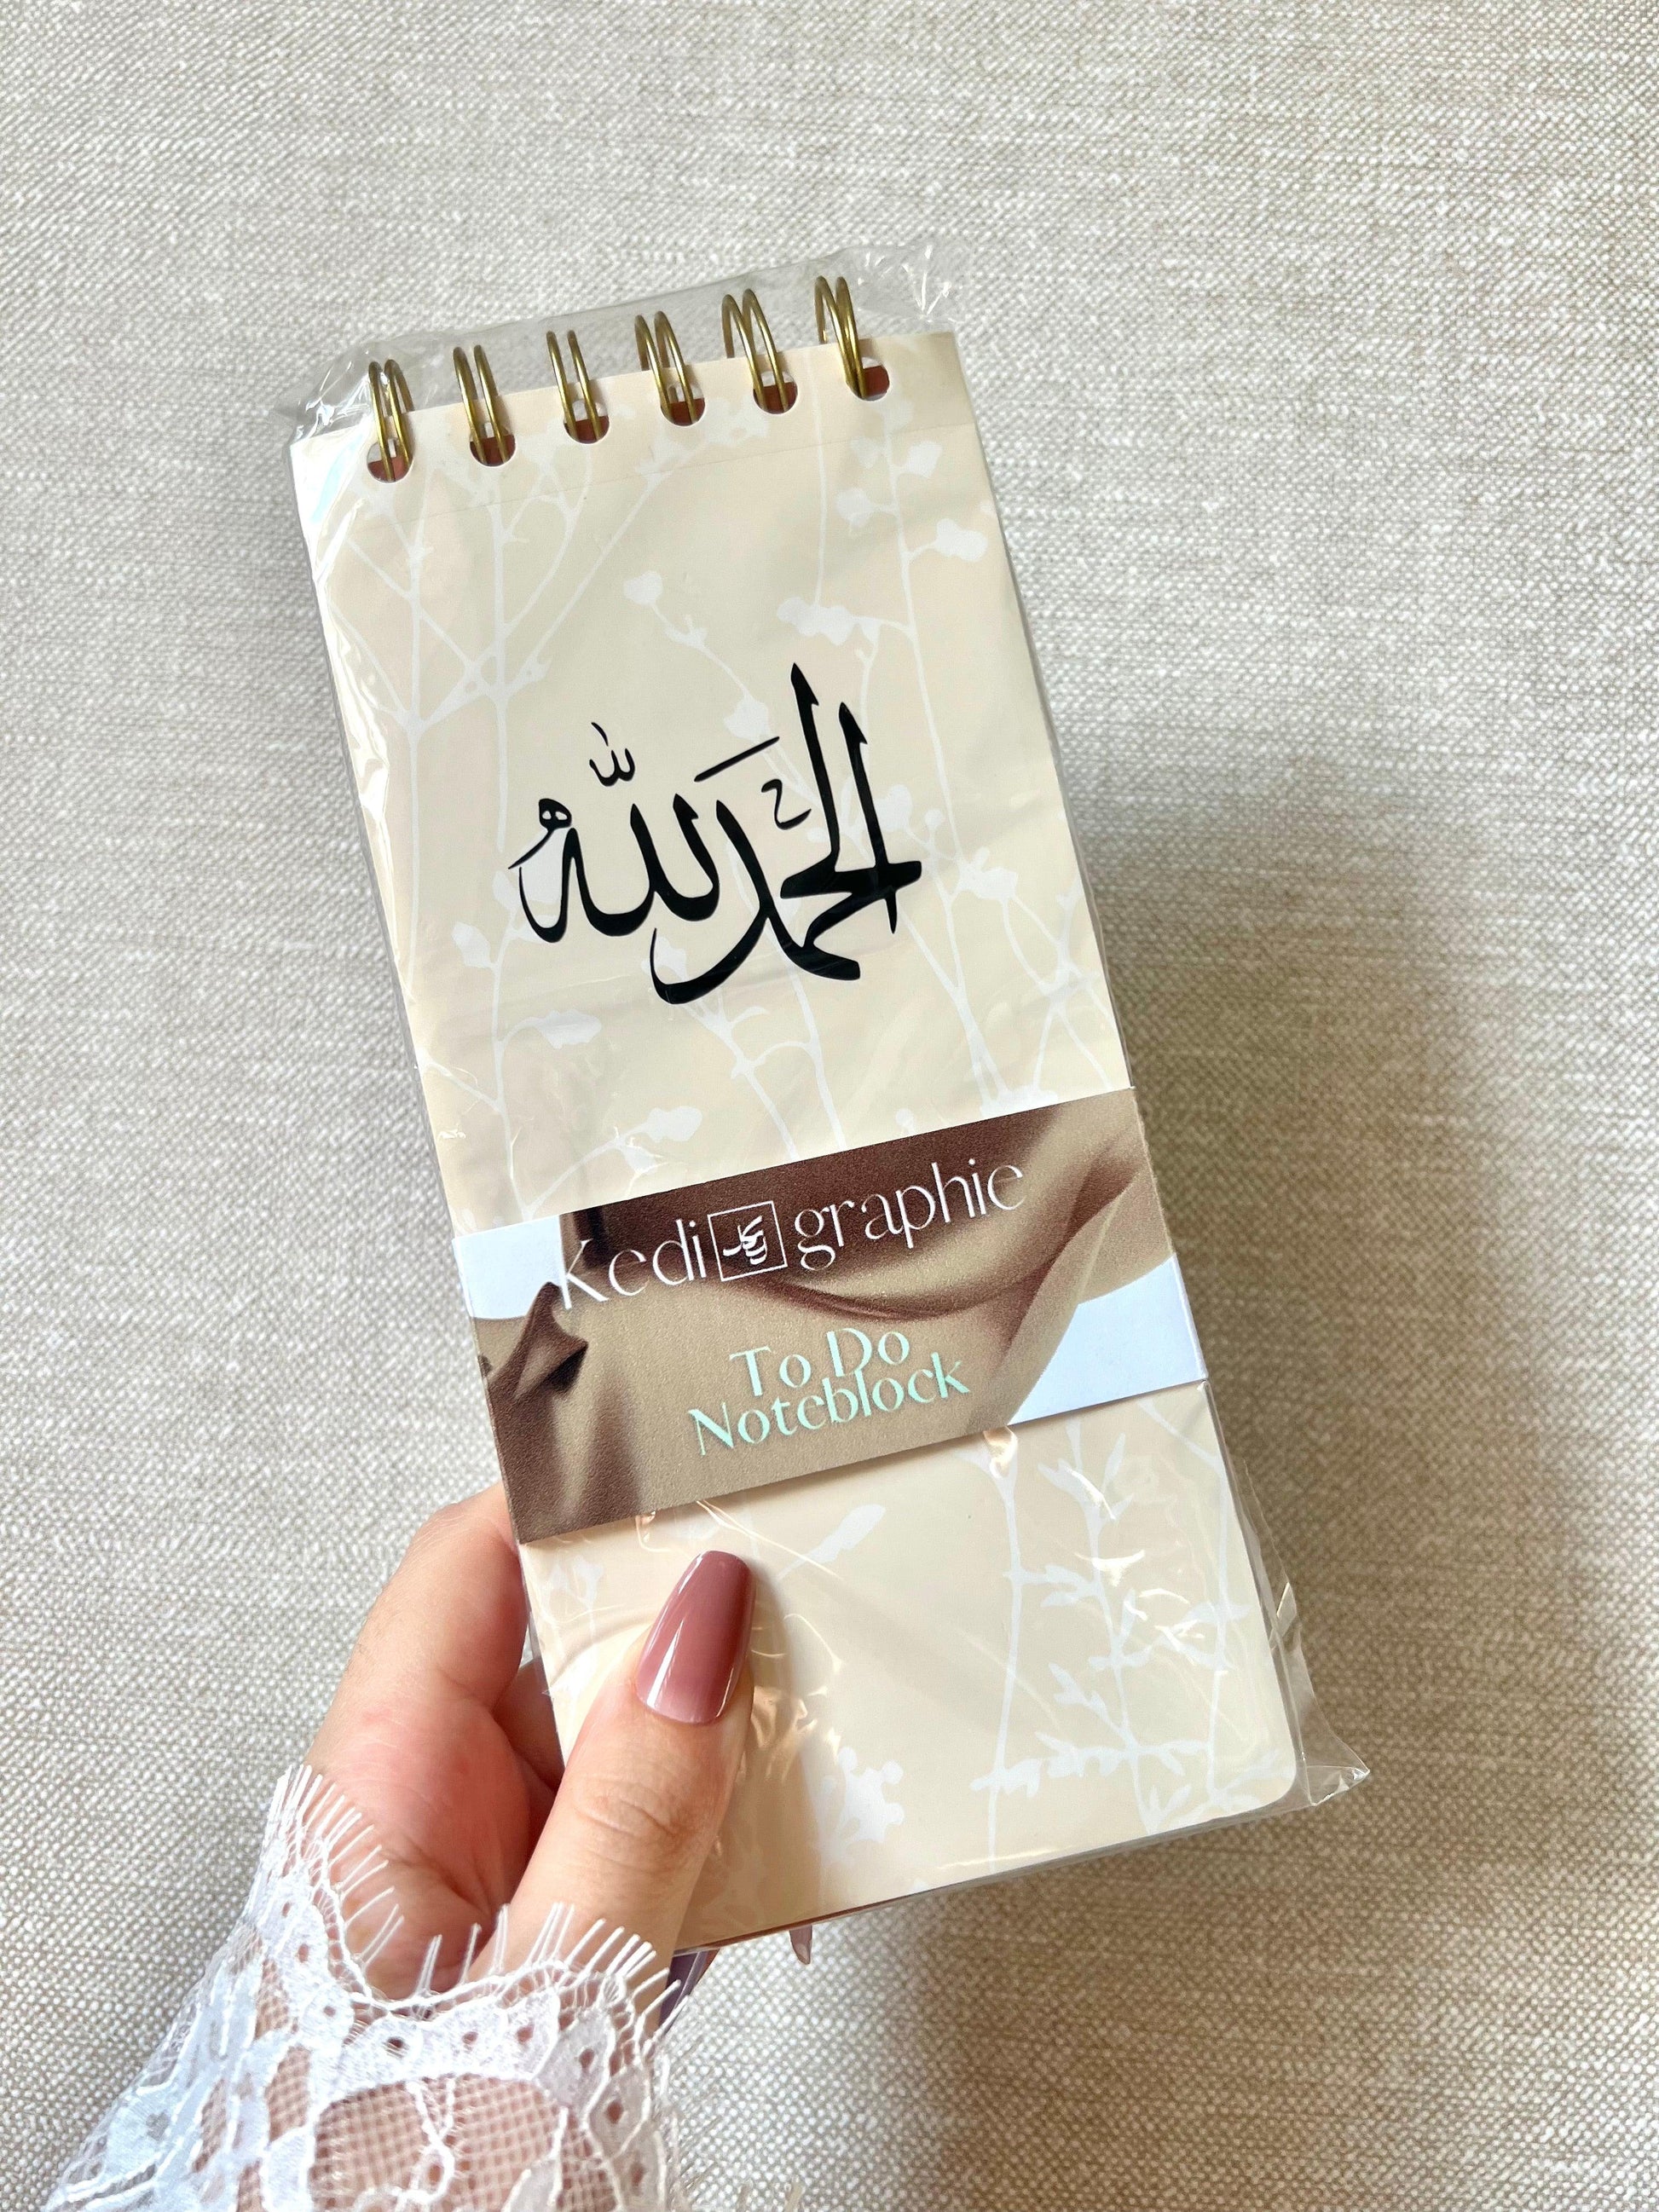 الحمد لله
Kedi graphie
To Do
Noteblock